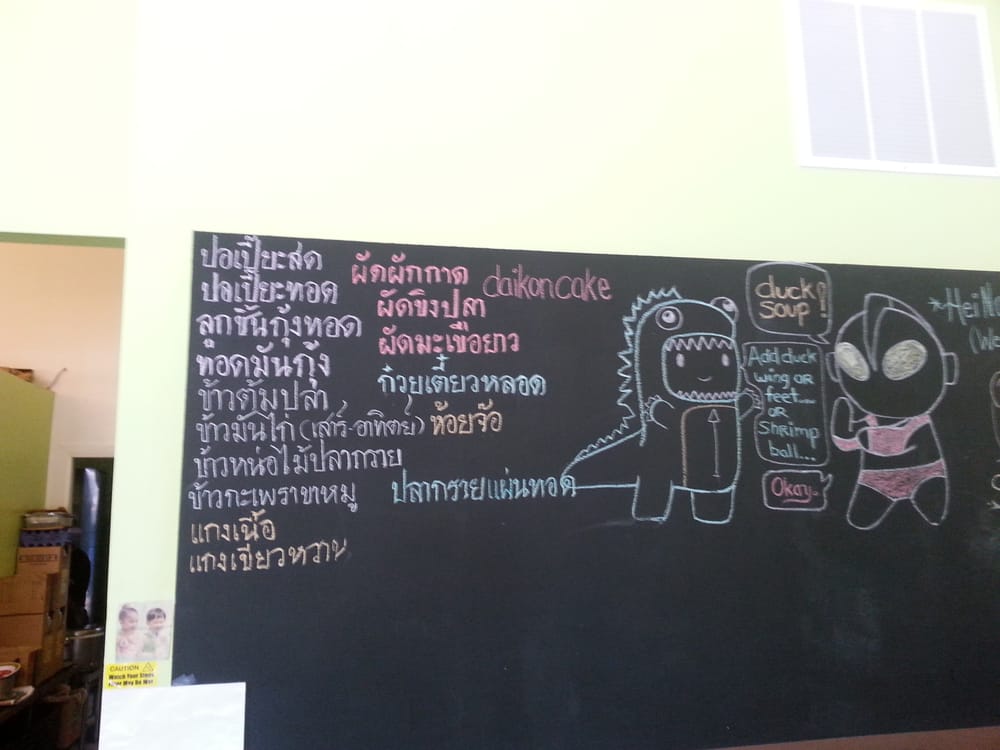 ปอเปี๊ยะสด
ปอเปี๊ยะทอด
ลูกชิ้นกุ้งทอด
ทอดมันกุ้ง
ข้าวต้มปลา
ข้าวมันไก่ (เสาร์-อาทิตย์)
ข้าวหน่อไม้ปลากราย
ข้าวกะเพราขาหมู
แกงเนื้อ
แกงเขียวหวาน
ผัดผักกาด daikon cake
ผัดขิงปลา
ผัดมะเขือยาว
ก๋วยเตี๋ยวหลอด
ห้อยจ๊อ
ปลากรายแผ่นทอด
duck
soup!
Add duck
wing or
feet...
or
Shrimp
ball...
Okay.
CAUTION
Watch Your Step